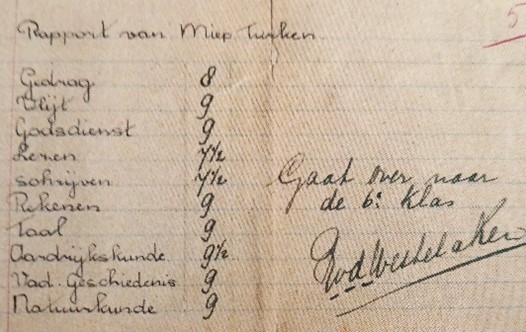 Rapport van Miep Turken.
5
Gedrag 8
Vlijt 9
Godsdienst 9
Lezen 7½
schrijven 7½
Rekenen 9
Taal 9
Aardrijkskunde 9½
Vad. Geschiedenis 9
Natuurkunde 9
Gaat over naar
de 6e klas